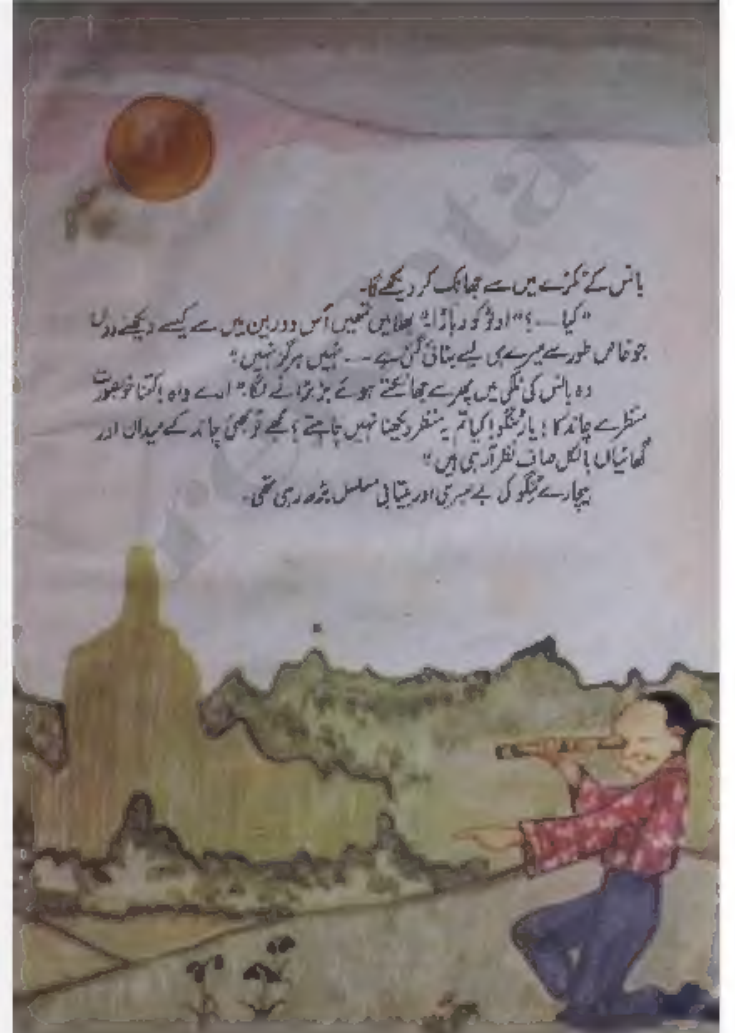 بانس کے ٹکڑے میں سے جھانک کر دیکھے گا۔
"کیا ۔۔۔۔؟" اوڑو کو دہاڑا "بھلا میں تمھیں اُس دوربین میں سے کیسے دیکھنے دوں
جو خاص طور سے میرے ہی لیے بنائی گئی ہے ۔۔۔ نہیں ہرگز نہیں"
وہ بانس کی نلکی میں پھر سے جھانکتے ہوئے بڑبڑانے لگا "ارے واہ! کتنا خوبصورت
منظر ہے چاند کا! یار ٹینگو! کیا تم یہ منظر دیکھنا نہیں چاہتے؟ مجھے تو بھئی چاند کے میدان اور
گھاٹیاں بالکل صاف نظر آ رہی ہیں"
بیچارے ٹینگو کی بے صبری اور بیتابی مسلسل بڑھ رہی تھی۔